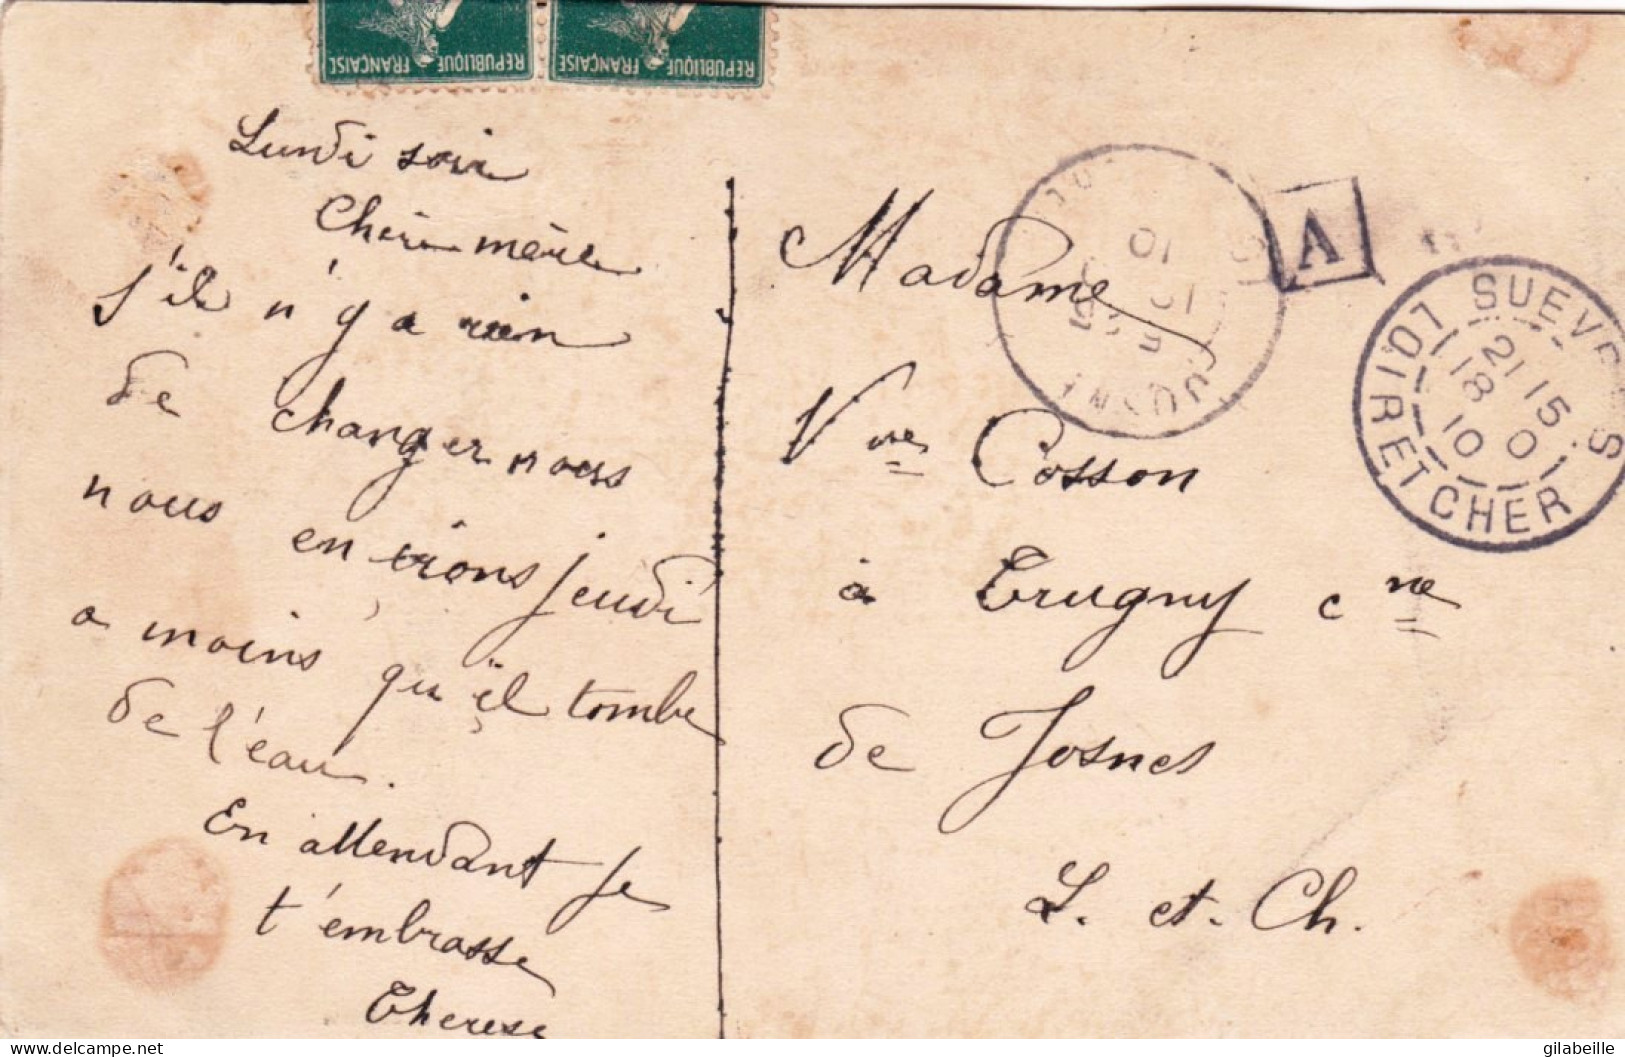 REPUBLIQUE FRANÇAISE
REPUBLIQUE FRANÇAISE
Lundi soir
Chère mère
s'il n'y a rien
de changer nous
nous en irons jeudi
a moins qu'il tombe
de l'eau.
En attendant je
t'embrasse
Therese
Madame
Vve Cosson
à Trugny cne
de Josnes
L. et. Ch.
A
SUEVRES
LOIR ET CHER
21 15
18 10
10
delcampe.net
gilabeille